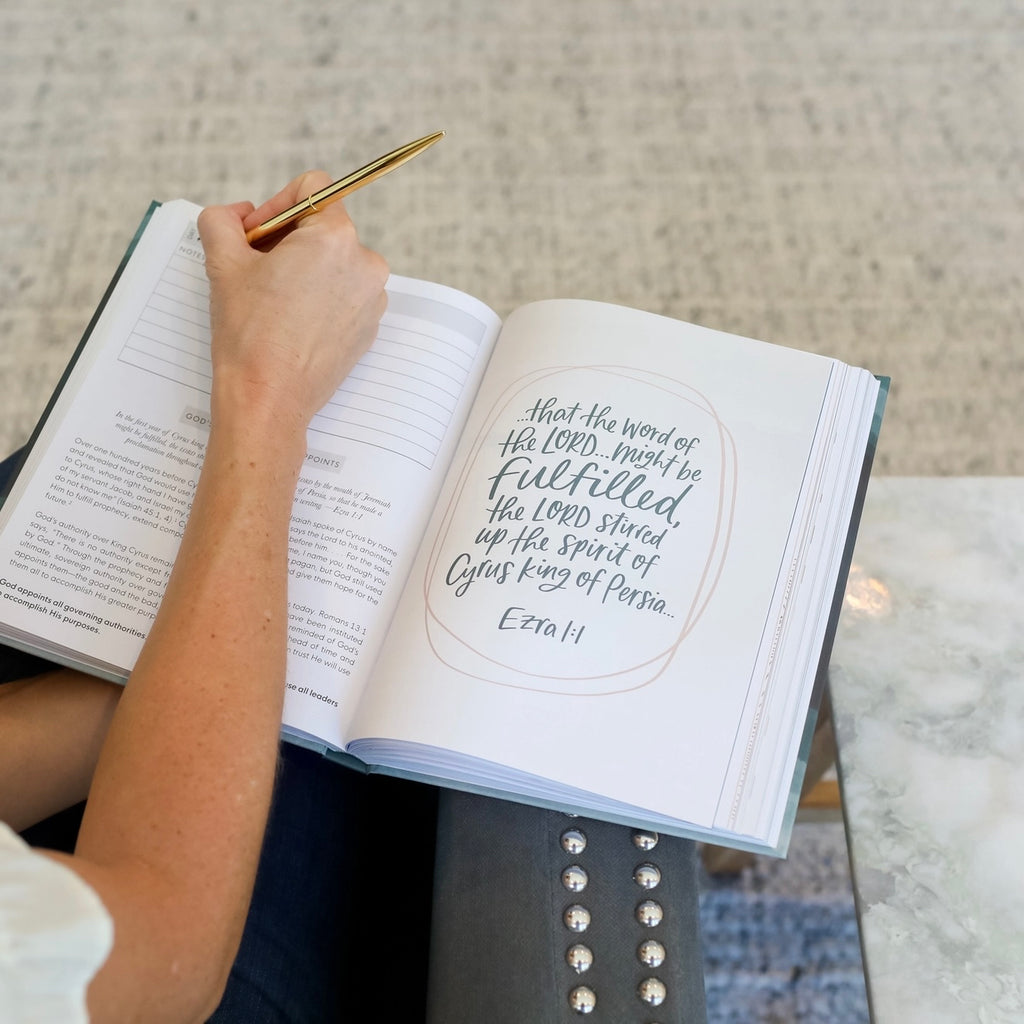 NOTES
GOD'S
POINTS
In the first year of Cyrus king
LORD by the mouth of Jeremiah
might be fulfilled, the LORD
of Persia, so that he made a
proclamation throughout
writing — Ezra 1:1
Over one hundred years before
Isaiah spoke of Cyrus by name
and revealed that God would use
says the Lord to his anointed,
to Cyrus, whose right hand I have
before him . . . For the sake
of my servant Jacob, and Israel my
e, I name you, though you
do not know me" (Isaiah 45:1, 4).
pagan, but God still used
Him to fulfill prophecy, extend
give them hope for the
future.
God's authority over King Cyrus
today. Romans 13:1
says, "There is no authority except
have been instituted
by God." Through the prophecy and
reminded of God's
ultimate, sovereign authority over
head of time and
appoints them—the good and the bad
trust He will use
them all to accomplish His greater
God appoints all governing authorities.
use all leaders
accomplish His purposes.
...that the word of
the LORD...might be
Fulfilled,
the LORD stirred
up the spirit of
Cyrus king of Persia...
Ezra 1:1